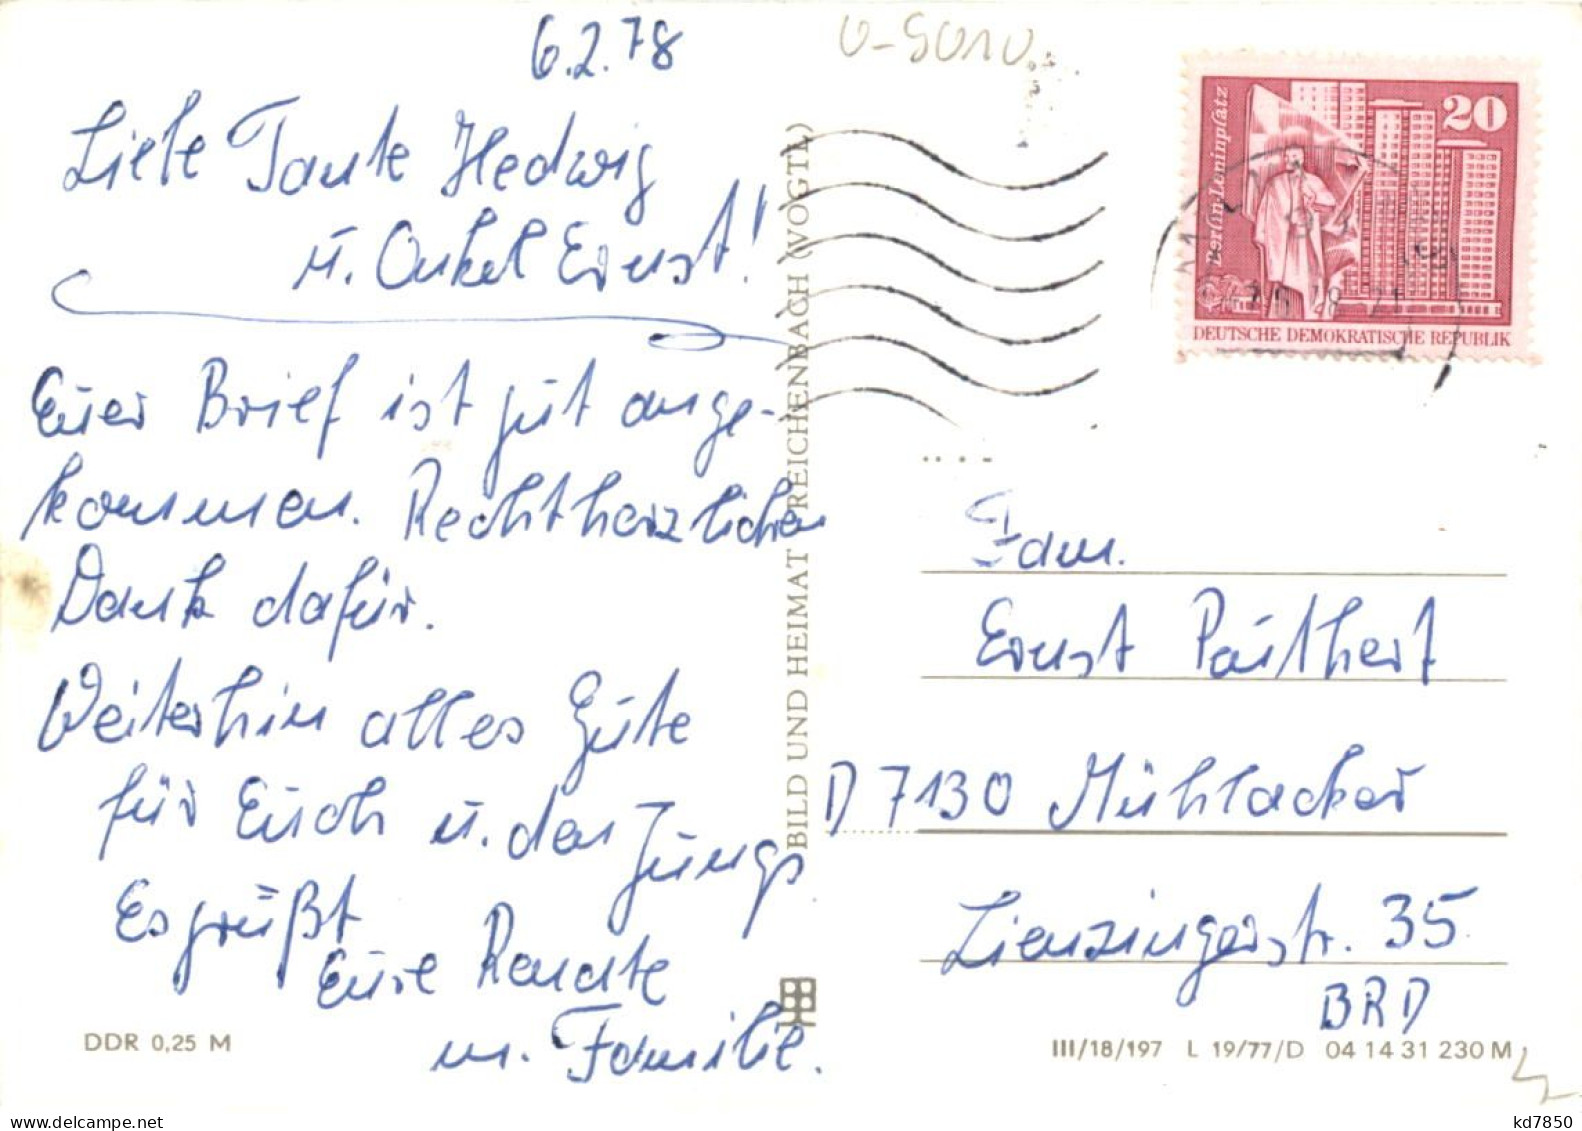 6.2.78
Liebe Tante Hedwig
u. Onkel Ernst!
Euer Brief ist gut ange-
kommen. Rechtherzlichen
Dank dafür.
Weiterhin alles Gute
für Euch u. der Jungs
Es grüßt
Eure Renate
m. Familie.
DDR 0,25 M
BILD UND HEIMAT REICHENBACH (VOGTL)
0-5010
20
Berlin · Leninplatz
DEUTSCHE DEMOKRATISCHE REPUBLIK
Fam.
Ernst Päithert
D 7130 Mühlacker
Lienzingerstr. 35
BRD
III/18/197 L 19/77/D 04 14 31 230 M
kd7850